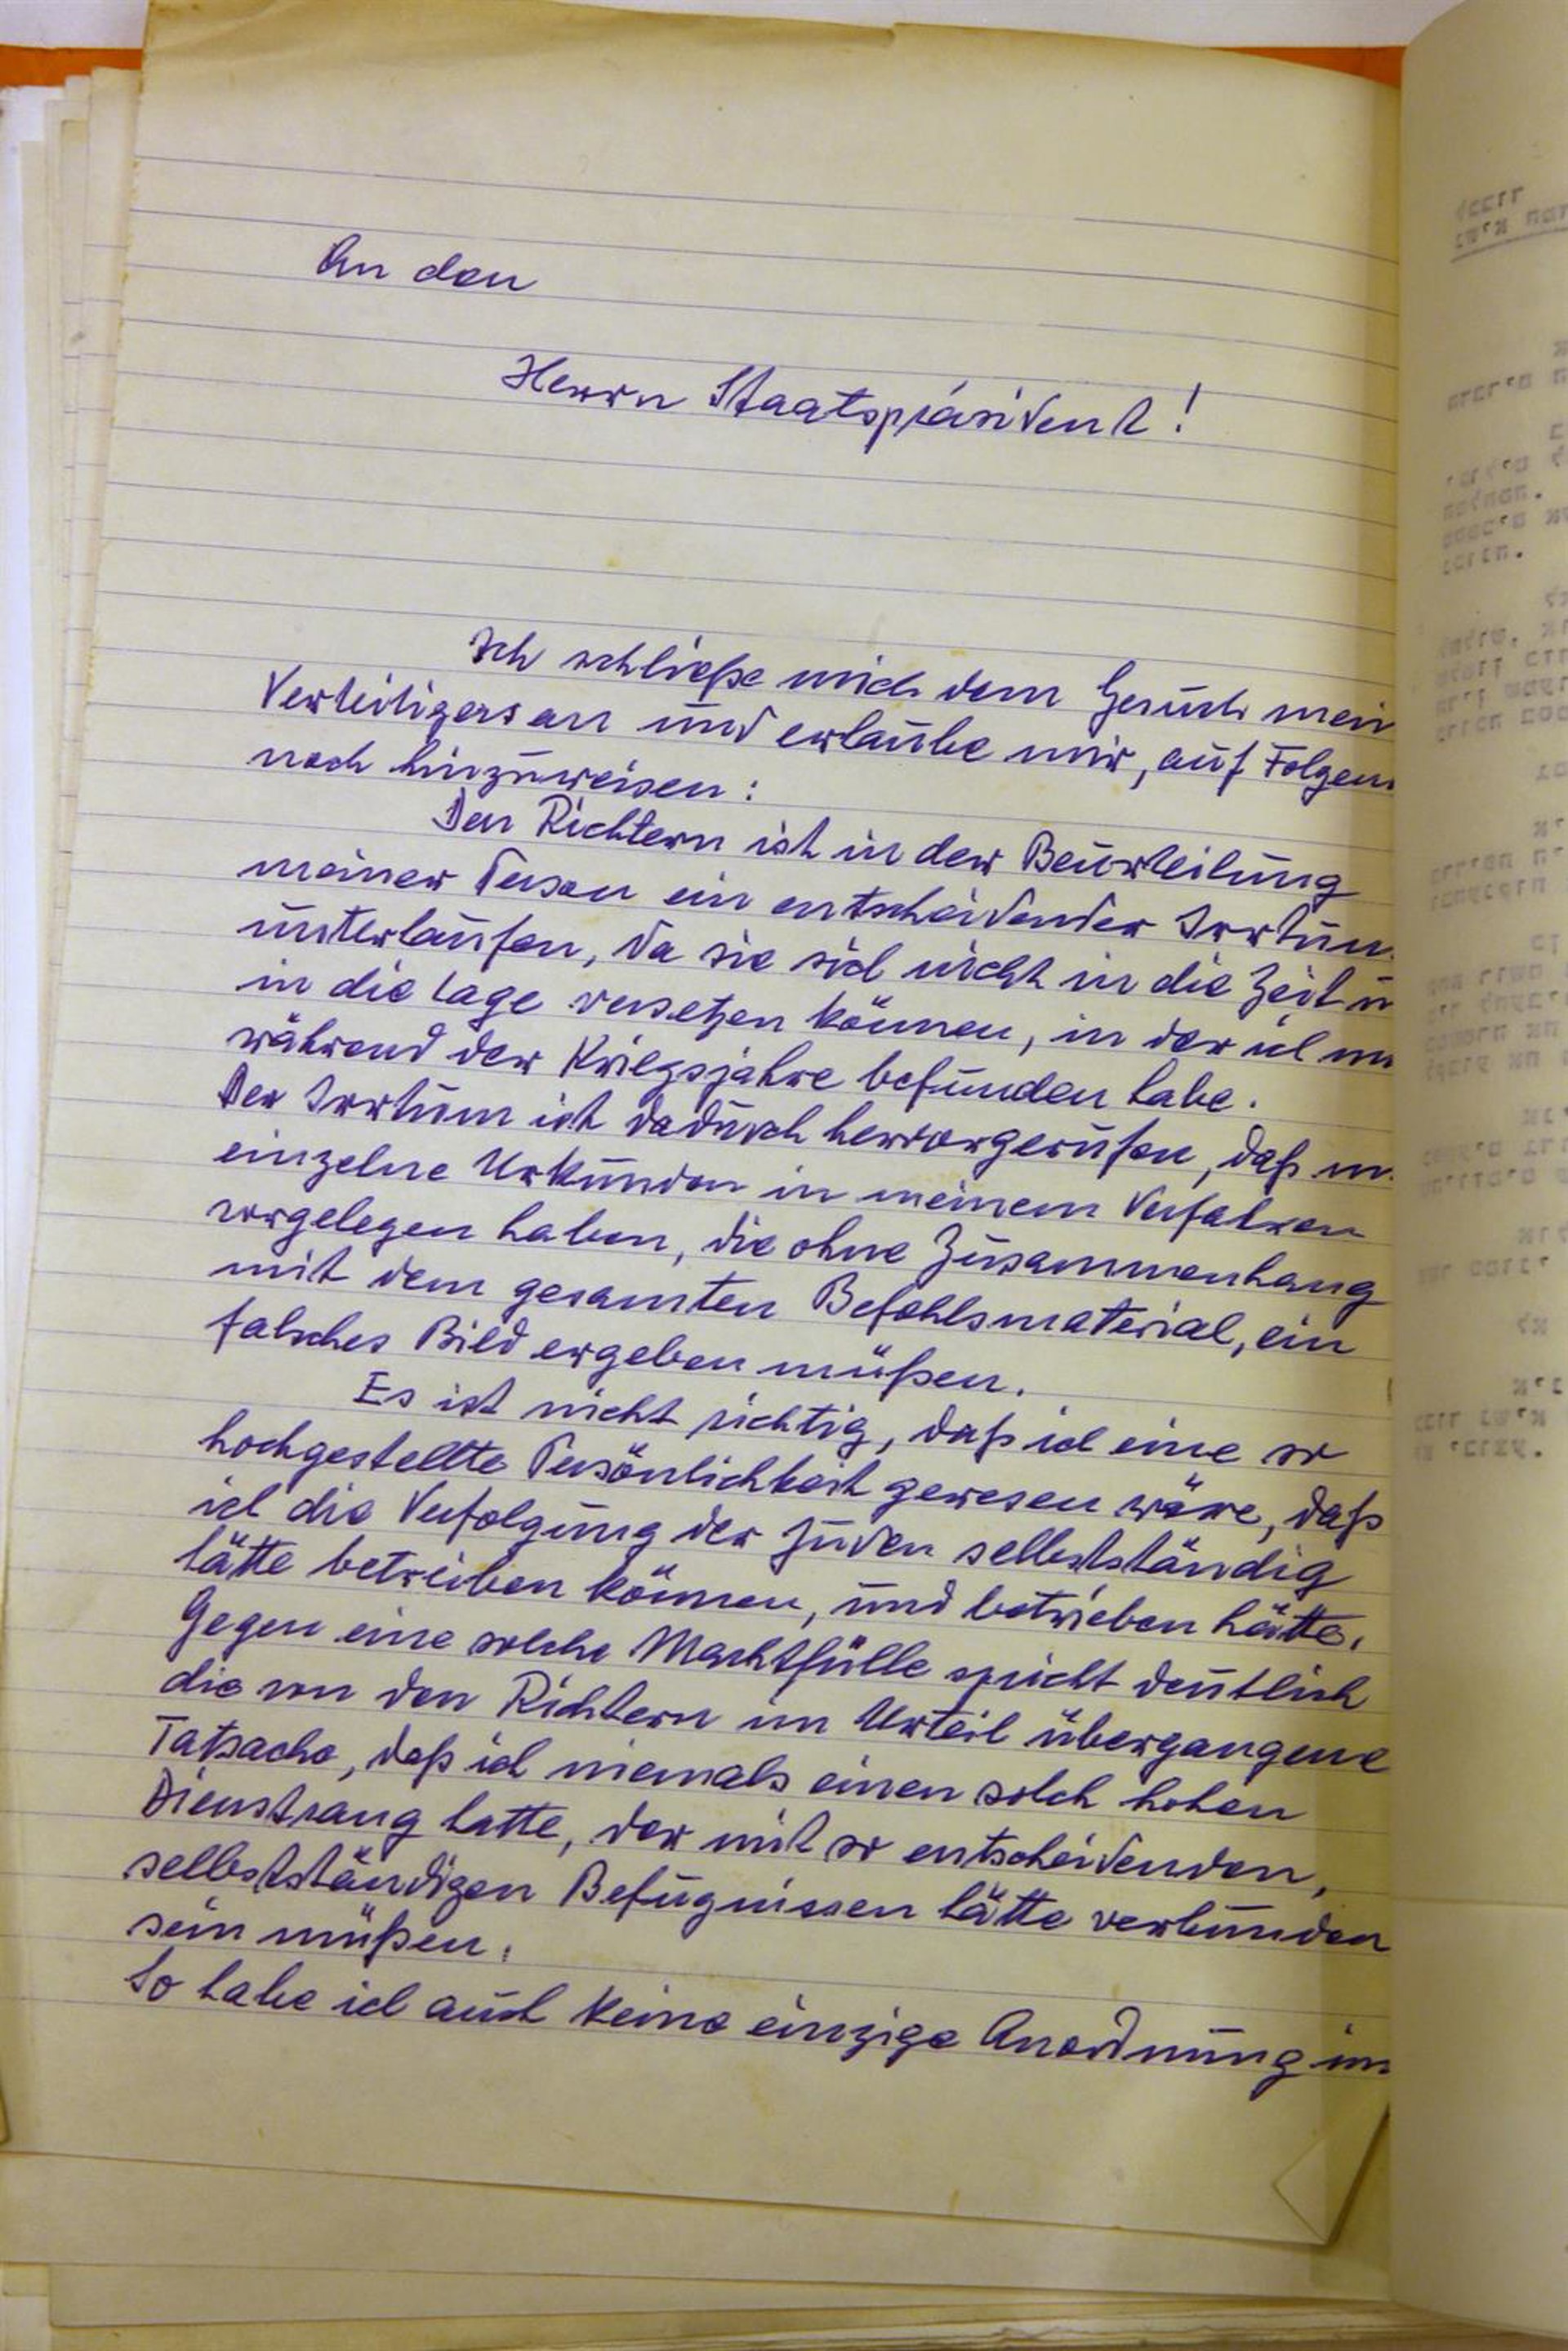 An den
Herrn Staatspräsident!
Ich schließe mich dem Gesuch mein
Verteidigers an und erlaube mir, auf Folgen
noch hinzuweisen:
Den Richtern ist in der Beurteilung
meiner Person ein entscheidender Irrtum
unterlaufen, da sie sich nicht in die Zeit u
in die Lage versetzen können, in der ich m
während der Kriegsjahre befunden habe.
Der Irrtum ist dadurch hervorgerufen, daß m
einzelne Urkunden in meinem Verfahren
vorgelegen haben, die ohne Zusammenhang
mit dem gesamten Befehlsmaterial, ein
falsches Bild ergeben müßen.
Es ist nicht richtig, daß ich eine so
hochgestellte Persönlichkeit gewesen wäre, daß
ich die Verfolgung der Juden selbstständig
hätte betreiben können, und betrieben hätte.
Gegen eine solche Machtfülle spricht deutlich
die von den Richtern im Urteil übergangene
Tatsache, daß ich niemals einen solch hohen
Dienstrang hatte, der mit so entscheidenden,
selbstständigen Befugnissen hätte verbunden
sein müßen.
So habe ich auch keine einzige Anordnung im